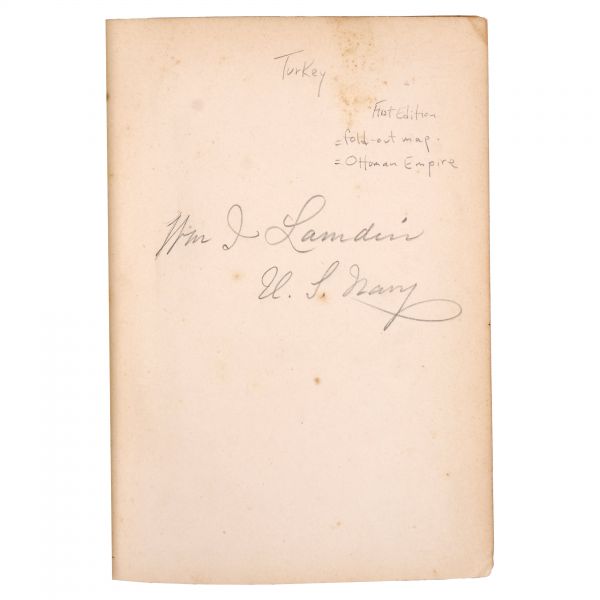 Turkey
First Edition
= fold-out map.
= Ottoman Empire
Wm I Lamdin
U. S. Navy